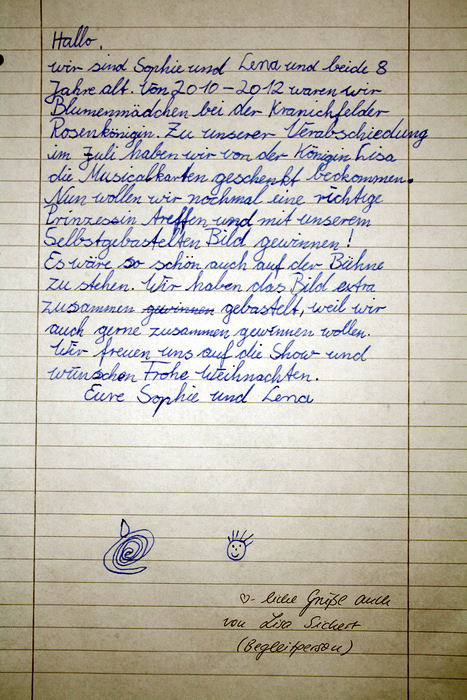 Hallo,
wir sind Sophie und Lena und beide 8
Jahre alt. Von 2010-2012 waren wir
Blumenmädchen bei der Kranichfelder
Rosenkönigin. Zu unserer Verabschiedung
im Juli haben wir von der Königin Lisa
die Musicalkarten geschenkt beckommen.
Nun wollen wir nochmal eine richtige
Prinzessin treffen und mit unserem
Selbstgebastelten Bild gewinnen!
Es wäre so schön auch auf der Bühne
zu stehen. Wir haben das Bild extra
zusammen gewinnen gebastelt, weil wir
auch gerne zusammen gewinnen wollen.
Wir freuen uns auf die Show und
wünschen Frohe Weihnachten.
Eure Sophie und Lena
♡- liebe Grüße auch
von Lisa Sickert
(Begleitperson)